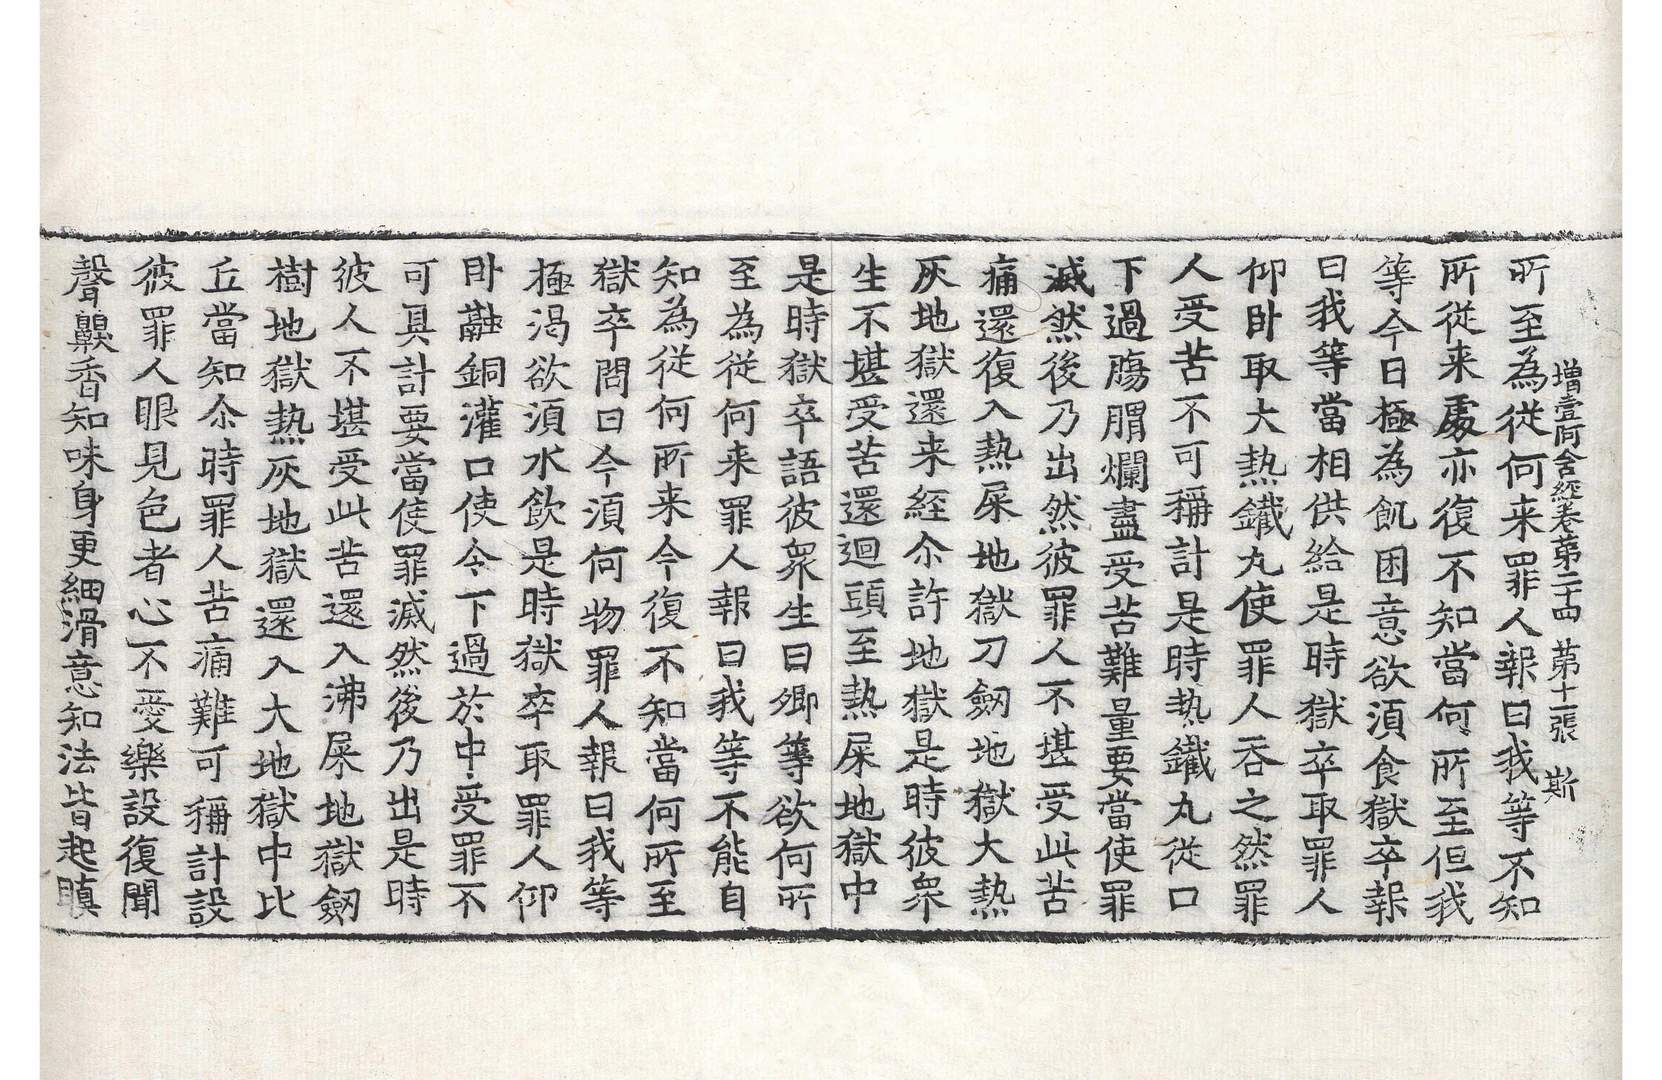 增壹阿含經卷第二十四 第十一張 斯
所至為從何来罪人報曰我等不知
所從来處亦復不知當何所至但我
等今日極為飢困意欲湏食獄卒報
曰我等當相供給是時獄卒取罪人
仰卧取大熱鐵丸使罪人吞之然罪
人受苦不可稱計是時熱鐵丸從口
下過膓胃爛盡受苦難量要當使罪
滅然後乃出然彼罪人不堪受此苦
痛還復入熱屎地獄刀劒地獄大熱
灰地獄還来經尒許地獄是時彼衆
生不堪受苦還迴頭至熱屎地獄中
是時獄卒語彼衆生曰卿等欲何所
至為從何来罪人報曰我等不能自
知為從何所来今復不知當何所至
獄卒問曰今湏何物罪人報曰我等
極渴欲湏水飲是時獄卒取罪人仰
卧融銅灌口使令下過於中受罪不
可具計要當使罪滅然後乃出是時
彼人不堪受此苦還入沸屎地獄劒
樹地獄熱灰地獄還入大地獄中比
丘當知尒時罪人苦痛難可稱計設
彼罪人眼見色者心不愛樂設復聞
聲齅香知味身更細滑意知法皆起瞋